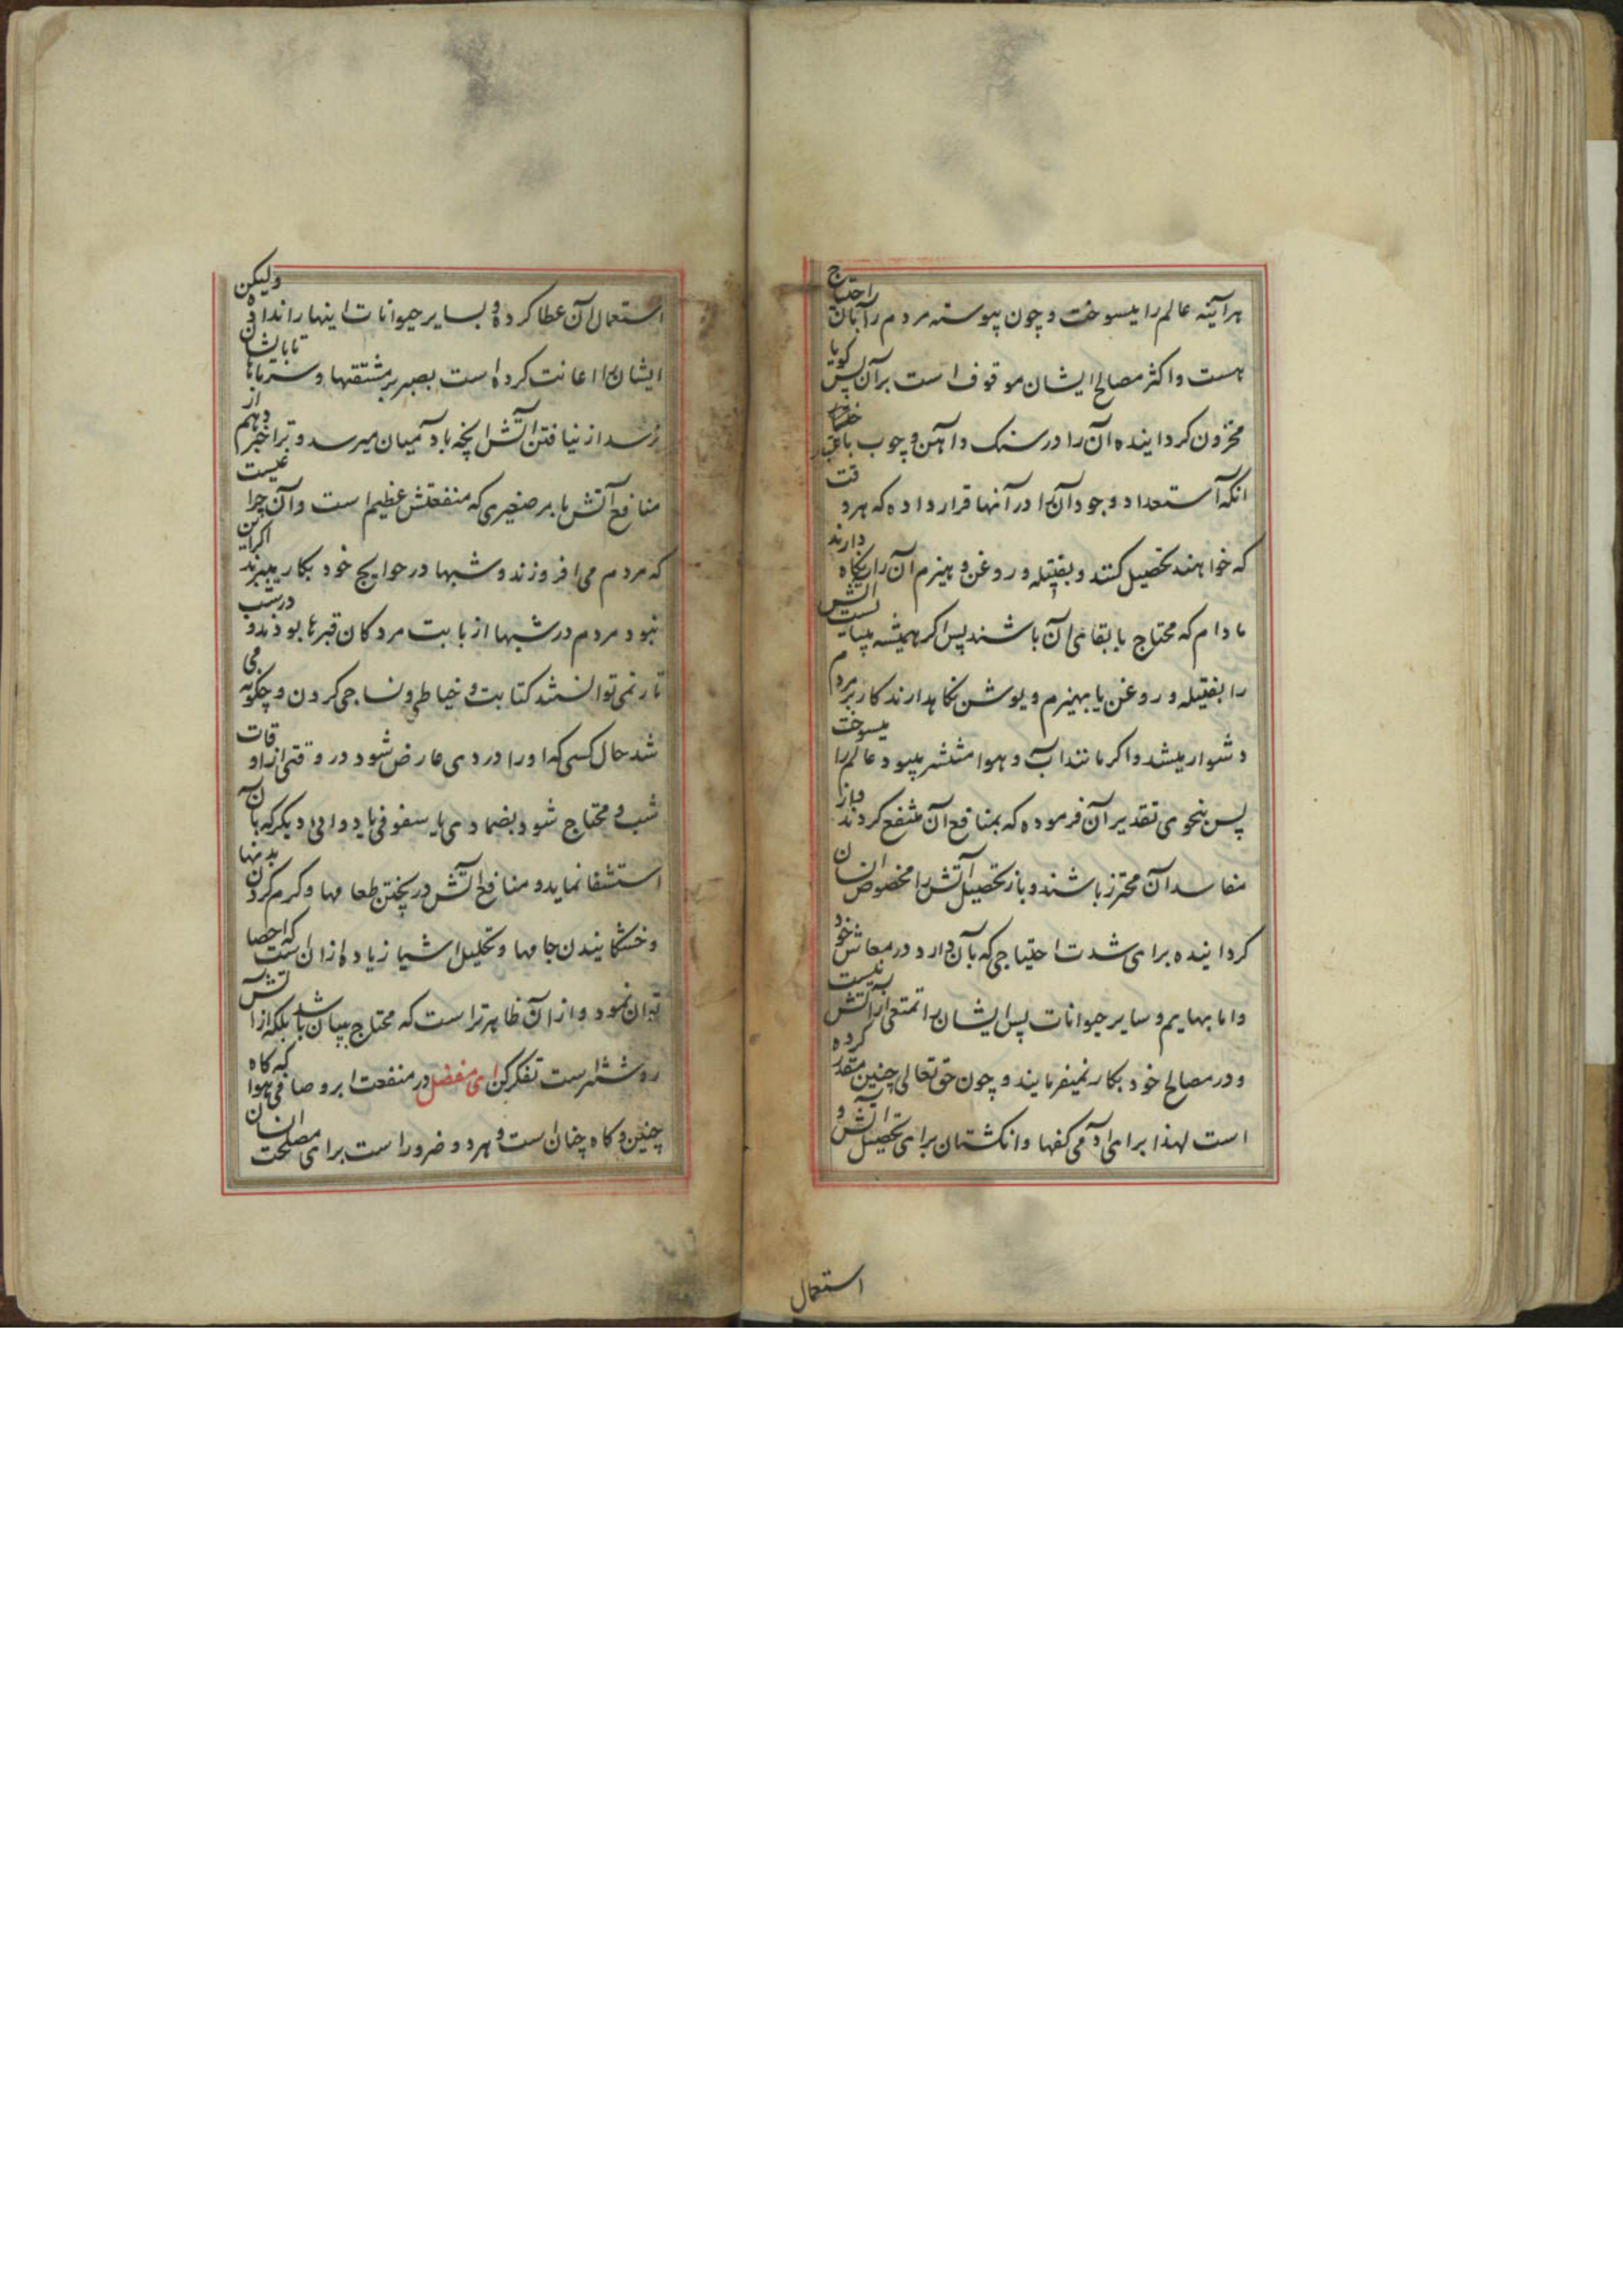 هرآینه عالم را میسوخت و چون پیوسته مردم را بآن احتیاج
هست و اکثر مصالح ایشان موقوف است برآن پس کویا
مخزون کردانیده آن را در سنک و آهن و چوب باعتبار
انکه استعداد وجود آن را در آنها قرار داده که هر وقت
که خواهند تحصیل کنند و بفتیله و روغن و هیزم آن را نکاه دارند
مادام که محتاج بابقای آن باشند پس اکر همیشه میبایست آتش
را بفتیله و روغن یا بهیزم و پوشن نکاهدارند کار بر مردم
دشوار میشد و اکر مانند آب و هوا منتشر میبود عالم را میسوخت
پس بنحوی تقدیر آن فرموده که بمنافع آن منتفع کردند و از
مفاسد آن محترز باشند و باز تحصیل آتش را مخصوص انسان
کردانیده برای شدت احتیاجی که بآن دارد در معاش خود
و اما بهایم و سایر حیوانات پس ایشان را تمتعی از آتش نیست
و در مصالح خود بکار نمیفرمایند و چون حق تعالی چنین مقدر کرده
است لهذا برای آدمی کفها و انکشتان برای تحصیل آتش و
استعمال
استعمال آن عطا کرده و بسایر حیوانات اینها را نداده ولیکن
ایشان را اعانت کرده است بصبر بر مشقتها و سرماها تا بایشان
نرسد از نیافتن آتش انچه بآدمیان میرسد و ترا خبر دهم از
منافع آتش بامر صغیری که منفعتش عظیم است و آن چراغیست
که مردم می افروزند و شبها در حوایج خود بکار میبرند اکر این
نبود مردم در شبها از بابت مردکان قبرها بودند و در شب
تار نمی توانستند کتابت و خیاطی و نساجی کردن و چکونه می
شد حال کسی که او را دردی عارض شود در وقتی از اوقات
شب و محتاج شود بضمادی یا سفوفی یا دوائی دیکر که بآن
استشفا نماید و منافع آتش در پختن طعامها و کرم کردن بدنها
و خشکانیدن جامها و تحلیل اشیا زیاده از آن است که احصا
توان نمود و از آن ظاهرتر است که محتاج ببیان باشد بلکه از آتش
روشنتر است تفکر کن ای مفضل در منفعت ابر و صافی هوا که کاه
چنین و کاه چنان است و هر دو ضرور است برای مصلحت انسان